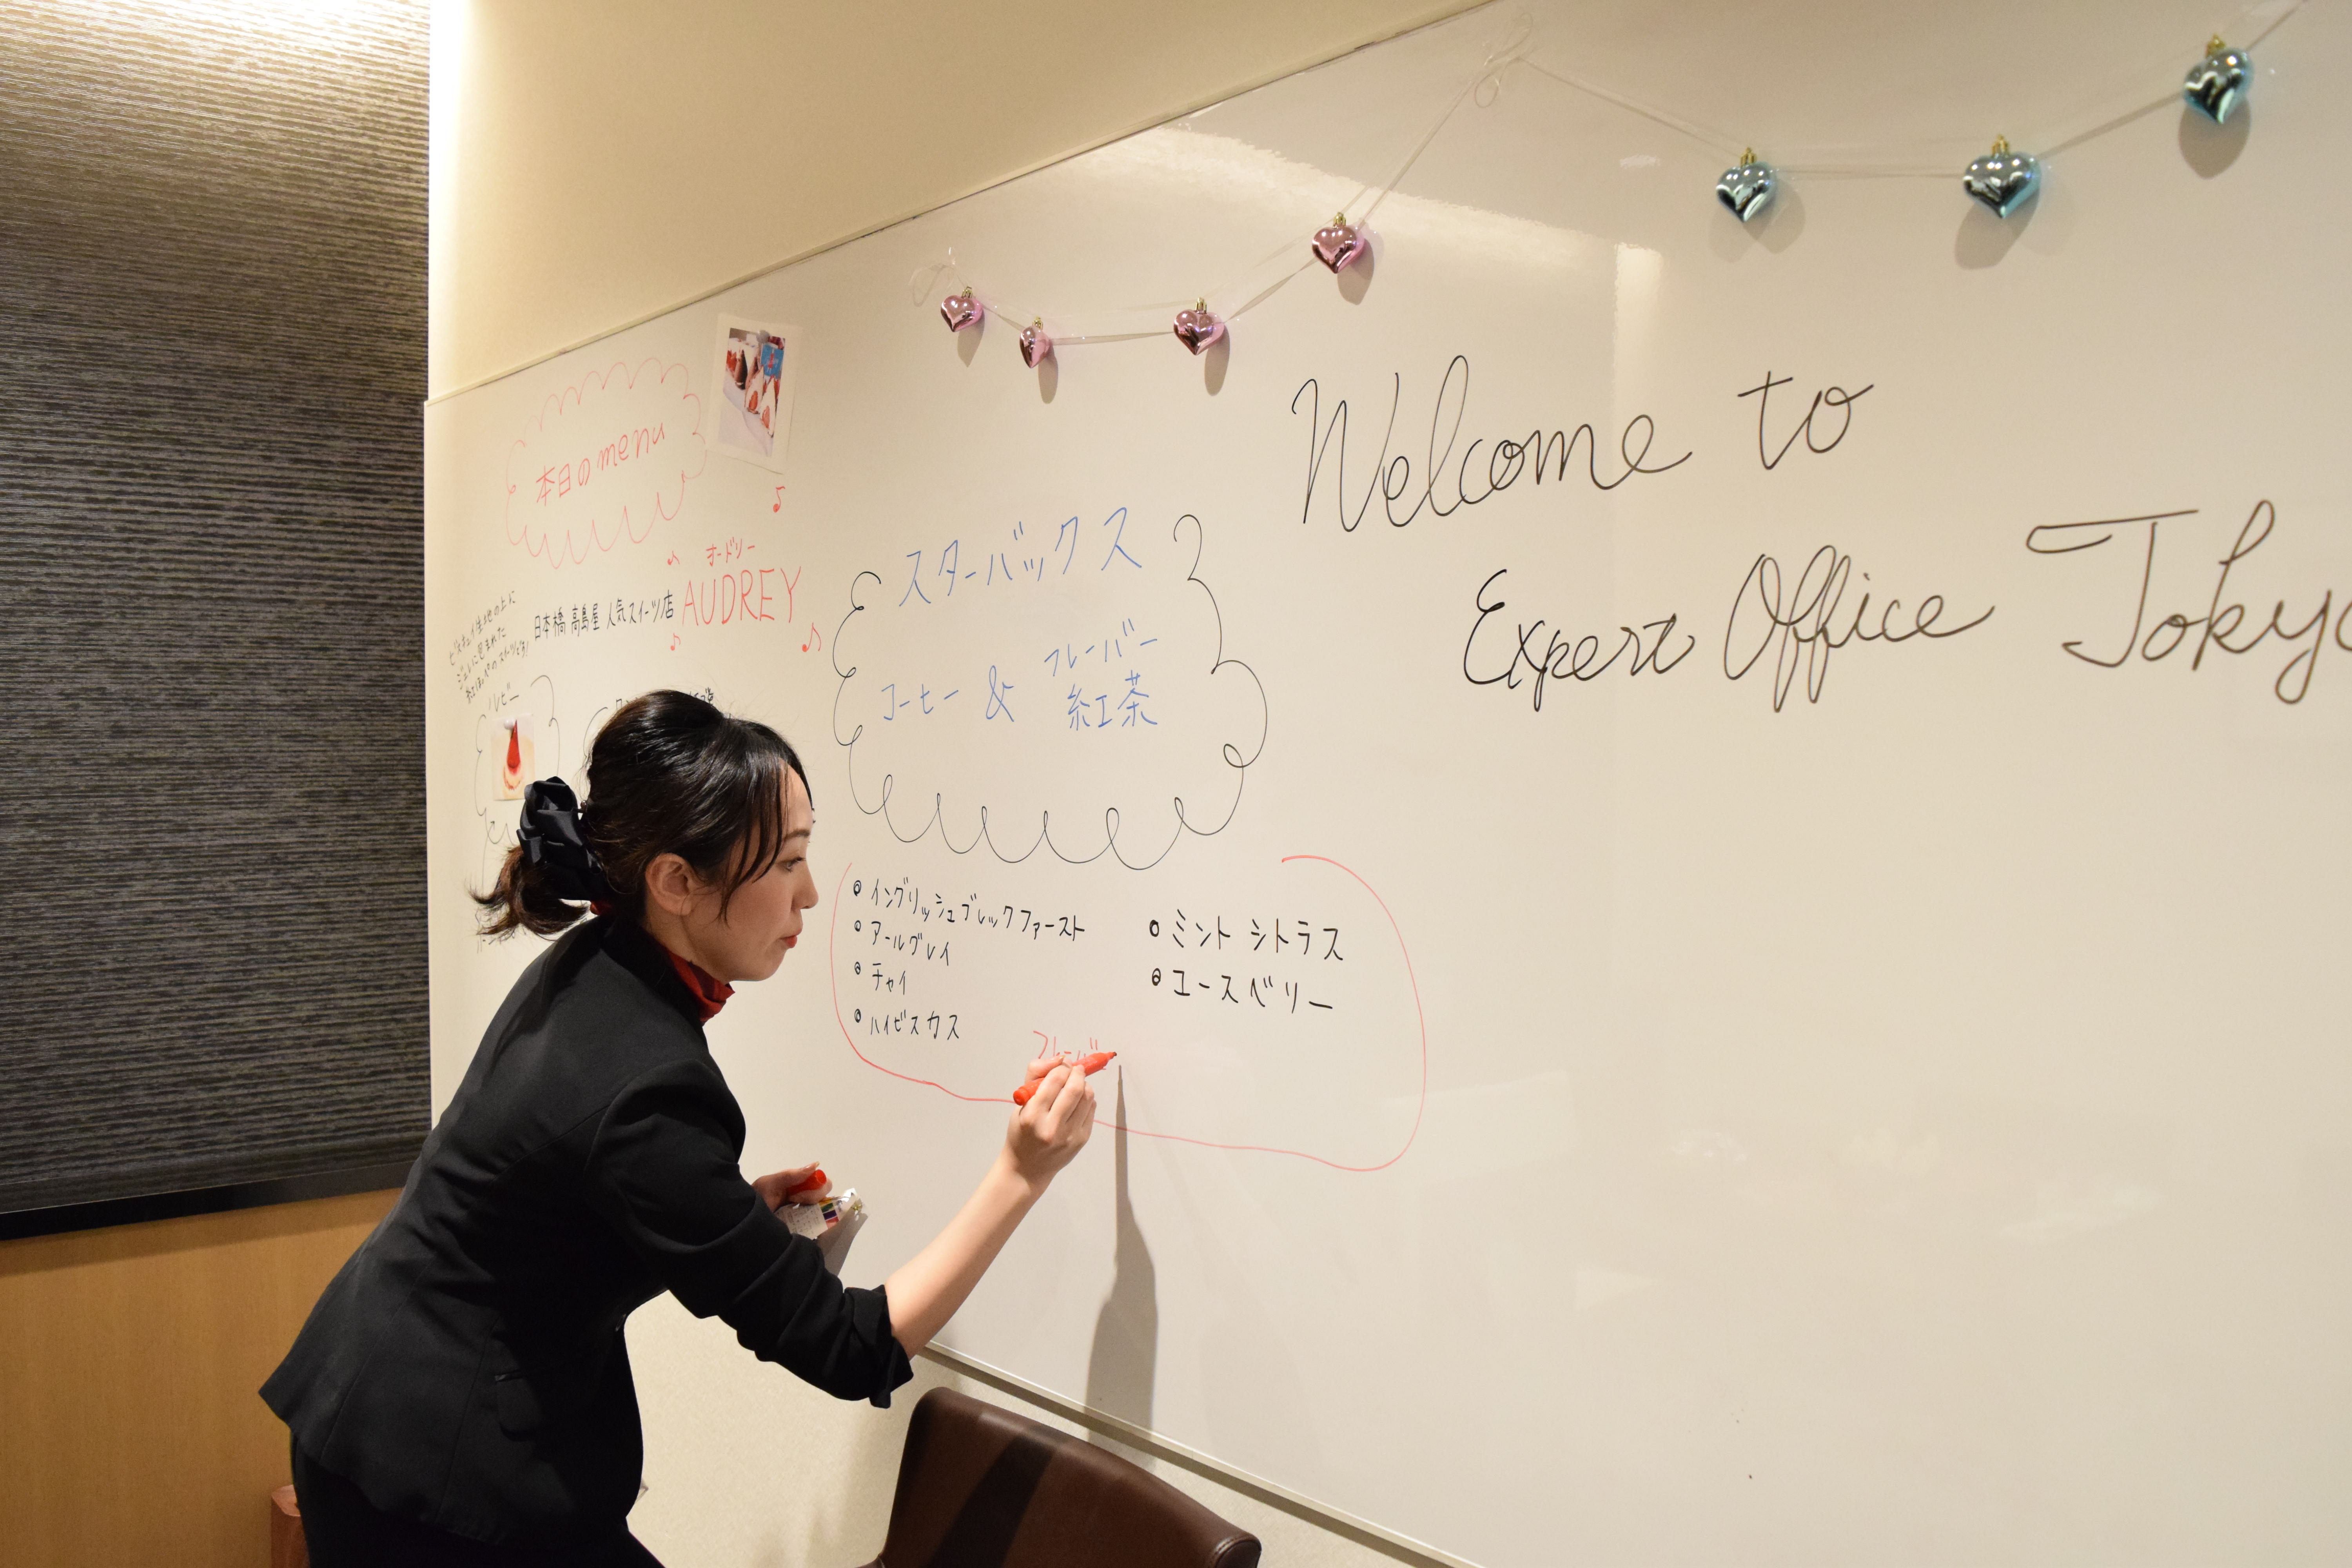 本日のmenu
オードリー
日本橋 高島屋 人気スイーツ店 AUDREY
ビスキュイ生地の上に
ジュレに包まれた
ルビー
スターバックス
コーヒー & フレーバー
紅茶
イングリッシュブレックファースト
アールグレイ
チャイ
ハイビスカス
ミント シトラス
ユースベリー
フレーバ
Welcome to
Expert Office Tokyo